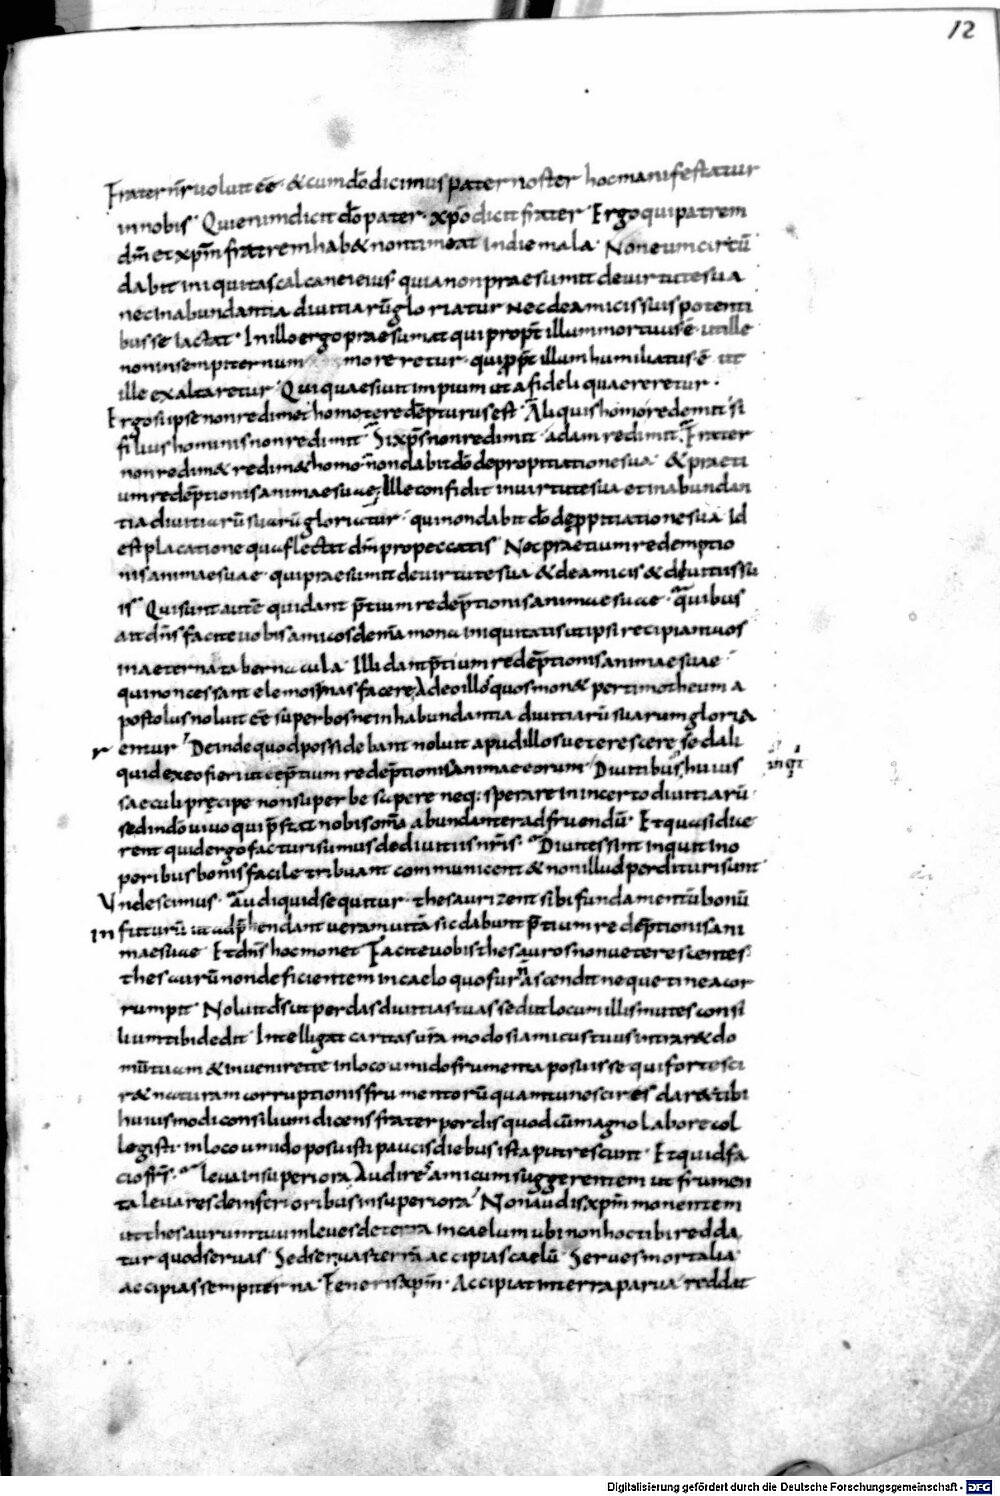 12
Frater nr̄ voluit eē · & cum do̅ dicimus pater noster hoc manifestatur
in nobis · Qui enim dicit do̅ pater · xp̅o dicit frater · Ergo qui patrem
dm̅ et xp̅m fratrem hab& non timeat in die mala · Non eum circū
dabit iniquitas calcanei eius quia non praesumit de virtute sua
nec in abundantia divitiarū gloriatur nec de amicis suis potenti
bus se iactat · In illo ergo praesumat qui propt̅ illum mortuus ē · ut ille
non in sempiternum moreretur · qui pp̅t illum humiliatus ē ut
ille exaltaretur · Qui quaesivit impium ut a fideli quaereretur ·
Ergo si ipse non redimet homo te redēpturus est · Aliquis homo redemit si
filius hominis non redimit · Si xp̅s non redimit · adam redimit · Frater
non redim& redim& homo · non dabit do̅ depropitiatione sua · & praeti
um redēptionis animae suae · Ille confidit in virtute sua et in abundan
tia divitiarū suarū gloriatur · qui non dabit do̅ deppitiatione sua Id
est placatione qua flectat dm̅ pro peccatis · Nec praetium redemptio
nis animae suae · qui praesumit de virtute sua & de amicis & divitiis su
is · Qui sunt autē qui dant p̅tium redēptionis animae suae · quibus
ait dn̅s facite vobis amicos de mamona iniquitatis ut ipsi recipiant vos
in aeterna tabernacula · Illi dant p̅tium redēptionis animae suae ·
qui non cessant elemosinas facere Adeo illos quos mon& per timotheum a
postolus noluit eē superbos ne in habundantia divitiarū suarum gloria
r entur · Deinde quod possidebant noluit apud illos veterescere sed ali
quid ex eo fieri ut eēt p̅tium redēptionis animae eorum · Divitibus huius
inq̅t
saeculi pręcipe non superbe sapere neq; sperare in incerto divitiarū ·
sed in do̅ vivo qui p̅stat nobis om̅a abundanter ad fruendū · Et quasi duce
rent quid ergo facturi sumus de divitiis nr̅is · Divites sint inquit in o
peribus bonis facile tribuant communicent & non illud perdituri sunt
Unde scimus · Audi quid sequitur · thesaurizent sibi fundamentū bonū
in futurū ut adp̅hendant veram vitā sic dabunt p̅tium redēptionis ani
mae suae · Et dn̅s hoc monet Facite vobis thesauros non veterescentes ·
thesaurū non deficientem in caelo quo fur n̅ ascendit neque tinea cor
rumpit · Noluit ds̅ ut perdas divitias tuas sed ut locum illis mutes consi
lium tibi dedit · Intelligat caritas vr̅a modo si amicus tuus intrar& do
mū tuam & invenir& te in loco umido frumenta posuisse qui forte sci
r& naturam corruptionis frumentorū quam tu nescires dar& tibi
huiusmodi consilium dicens frater perdis quod cū magno labore col
legisti · in loco umido posuisti paucis diebus ista putrescunt · Et quid fa
cio frs̅ · leva in superiora Audires amicum suggerentem ut frumen
ta levares de inferioribus in superiora · Non audis xp̅m monentem
ut thesaurum tuum leves de terra in caelum ubi non hoc tibi redda
tur quod servas · Sed servas terrā accipias caelū · Serves mortalia
accipias sempiterna · Feneris xp̅m · Accipiat in terra parva reddat
Digitalisierung gefördert durch die Deutsche Forschungsgemeinschaft - DFG